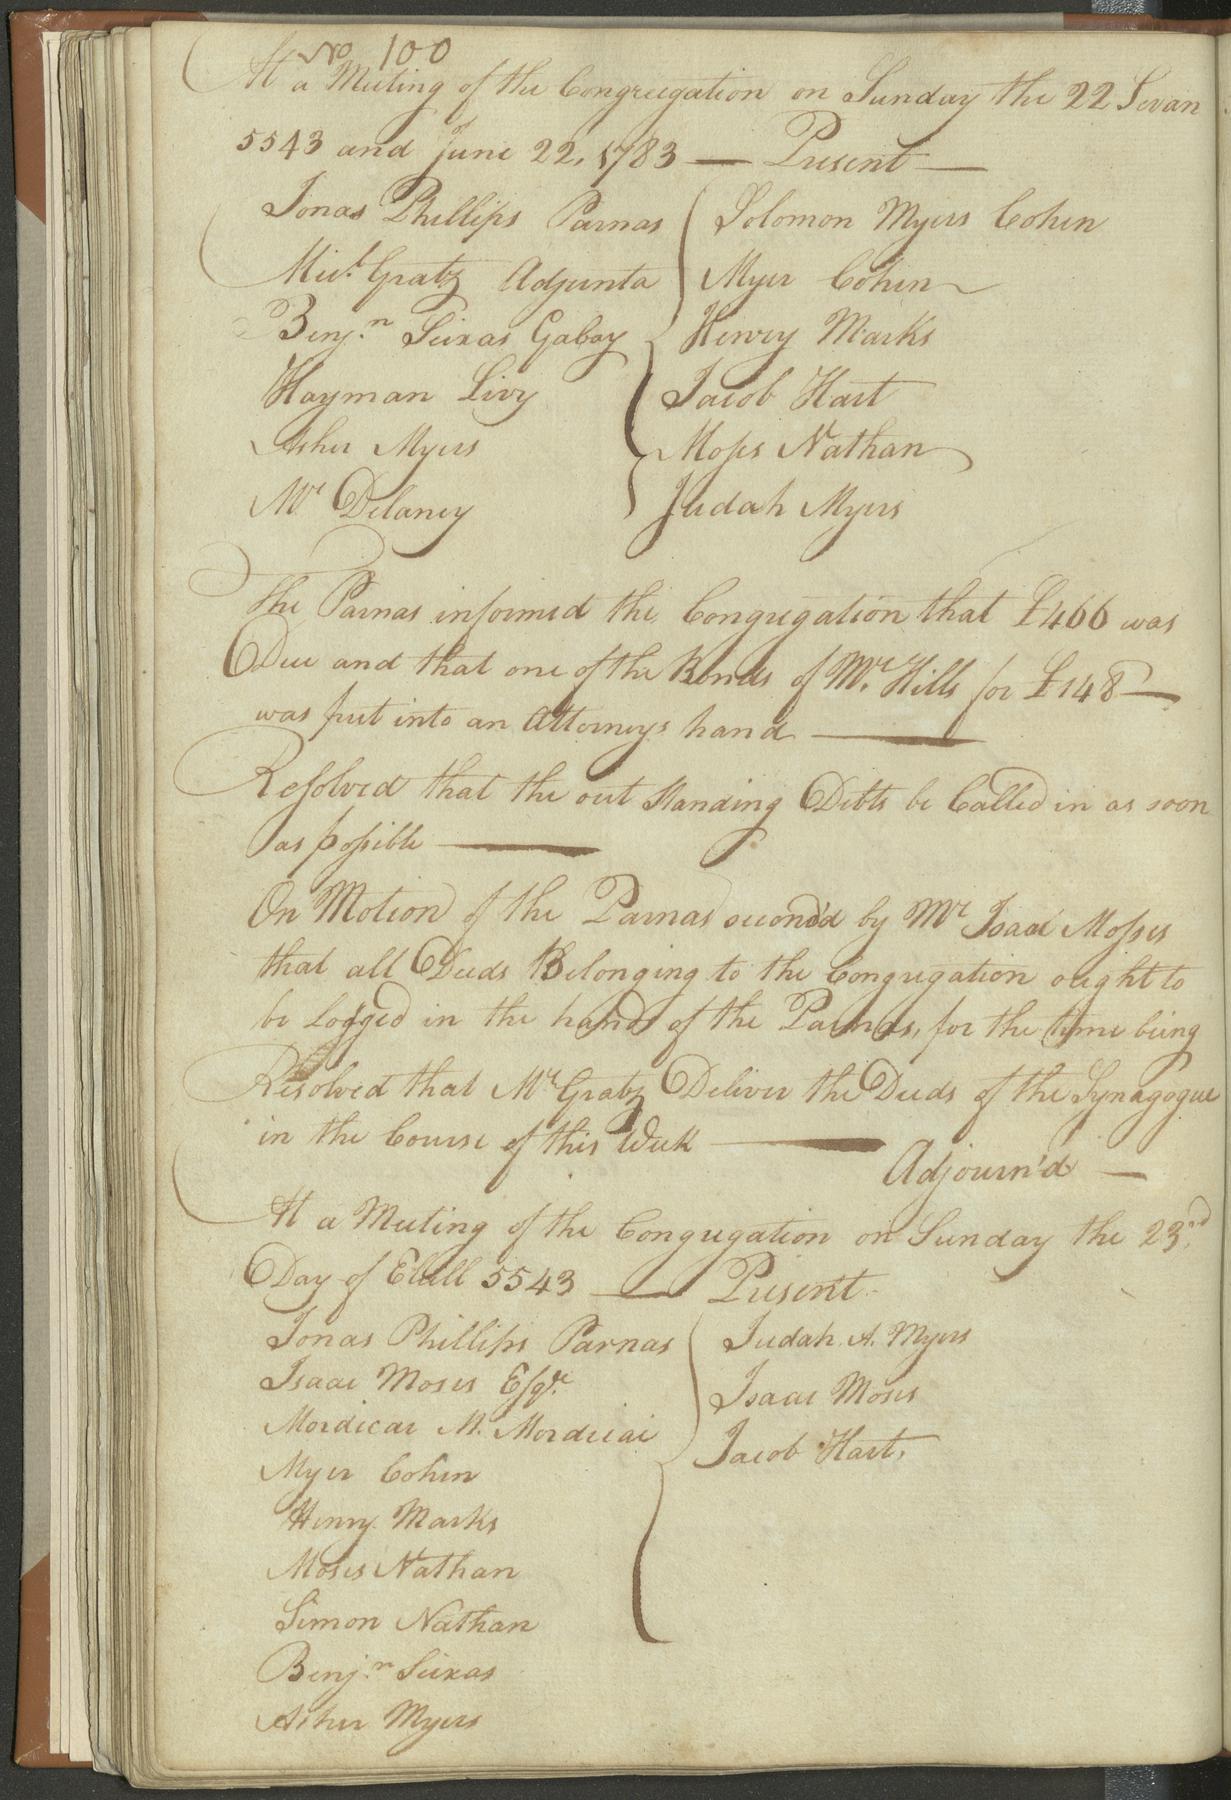 No 100
At a Meeting of the Congregation on Sunday the 22 Sivan
5543 and June 22, 1783 — Present —
Jonas Phillips Parnas
Mich.l Gratz Adjunta
Benj.n Seixas Gabay
Hayman Levy
Asher Myers
Mr Delaney
Solomon Myers Cohen
Myer Cohen
Henry Marks
Jacob Hart
Moses Nathan
Judah Myers
The Parnas informed the Congregation that £466 was
Due and that one of the Bonds of Mr. Hills for £148 —
was put into an Attorneys hand —
Resolved that the out standing Debts be Called in as soon
as possible —
On Motion of the Parnas second'd by Mr Isaac Moses
that all Deeds Belonging to the Congregation ought to
be Lodged in the hands of the Parnas, for the time being
Resolved that Mr Gratz Deliver the Deeds of the Synagogue
in the Course of this Week —
Adjourn'd —
At a Meeting of the Congregation on Sunday the 23rd
Day of Elull 5543 — Present
Jonas Phillips Parnas
Isaac Moses Esqr.
Mordicai M. Mordicai
Myer Cohen
Henry Marks
Moses Nathan
Simon Nathan
Benj.n Seixas
Asher Myers
Judah A. Myers
Isaac Moses
Jacob Hart,